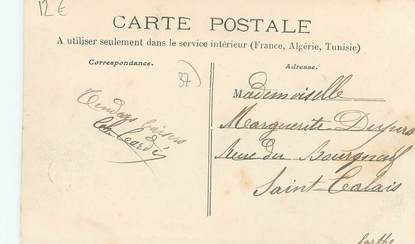 12€
CARTE POSTALE
A utiliser seulement dans le service intérieur (France, Algérie, Tunisie)
Correspondance.
Adresse.
37
Mademoiselle
Marguerite
Rue du Bourgneuf
Saint-Calais
Sarthe
Tendres baisers